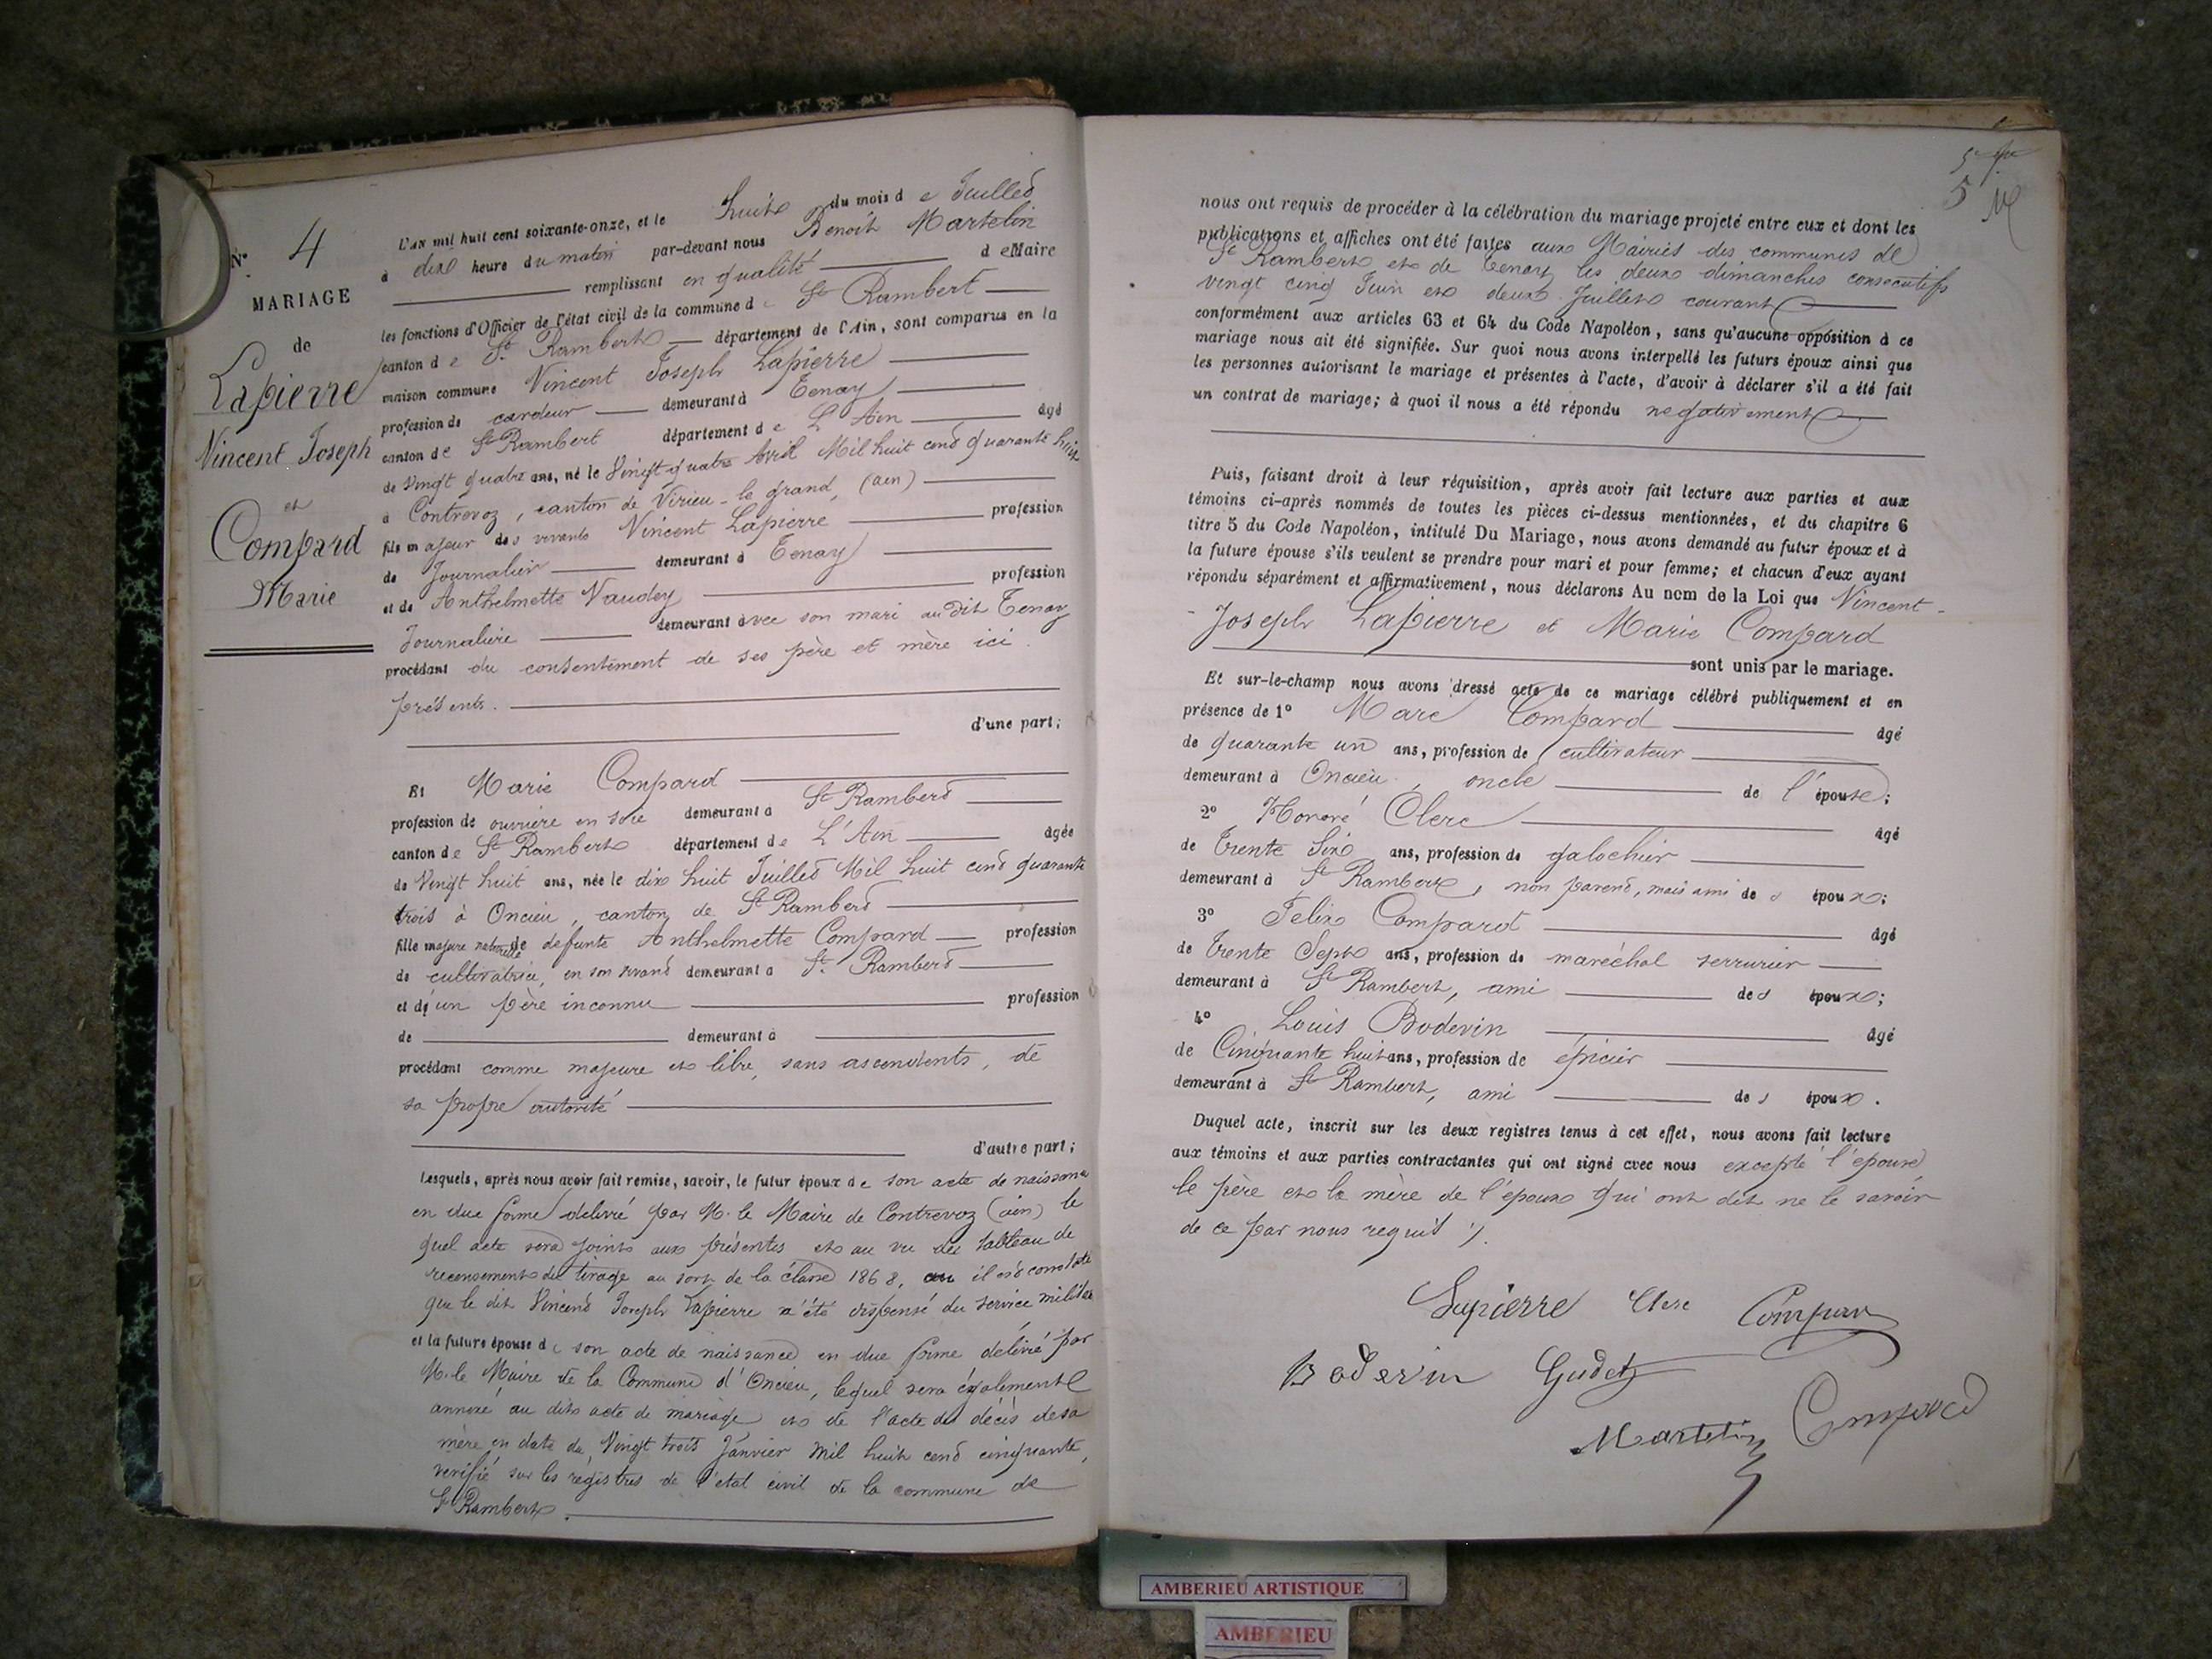 N° 4
MARIAGE
de
Lapierre
Vincent Joseph
et
Compard
Marie
L'an mil huit cent soixante-onze, et le huit du mois de Juillet
à dix heure du matin par-devant nous Benoît Martelin
remplissant en qualité de Maire
les fonctions d'Officier de l'état civil de la commune de St Rambert
canton de St Rambert département de l'Ain, sont comparus en la
maison commune Vincent Joseph Lapierre
profession de cardeur demeurant à Tenay
canton de St Rambert département de L'Ain âgé
de vingt quatre ans, né le Vingt quatre Avril Mil huit cent quarante huit
à Contrevoz, canton de Virieu-le grand, (ain)
fils majeur des vivants Vincent Lapierre profession
de Journalier demeurant à Tenay
et de Anthelmette Vaudey profession
Journalière demeurant avec son mari audit Tenay
procédant du consentement de ses père et mère ici
présents.
d'une part;
Et Marie Compard
profession de ouvrière en soie demeurant à St Rambert
canton de St Rambert département de L'Ain âgée
de Vingt huit ans, née le dix huit Juillet Mil huit cent quarante
trois à Oncieu, canton de St Rambert
fille majeure naturelle de défunte Anthelmette Compard profession
de cultivatrice, en son vivant demeurant à St. Rambert
et d'un père inconnu profession
de demeurant à
procédant comme majeure et libre, sans ascendents, de
sa propre autorité
d'autre part;
Lesquels, après nous avoir fait remise, savoir, le futur époux de son acte de naissance
en due forme délivré par M. le Maire de Contrevoz (ain) le
quel acte sera joint aux présentes et au vu du tableau de
recensement du tirage au sort de la classe 1868, où il est constaté
que le dit Vincent Joseph Lapierre a été dispensé du service militaire
et la future épouse de son acte de naissance en due forme délivré par
M. le Maire de la Commune d'Oncieu, lequel sera également
annexé au dit acte de mariage et de l'acte de décès de sa
mère en date du Vingt trois Janvier mil huit cent cinquante,
verifié sur les registres de l'état civil de la commune de
St Rambert.
5
nous ont requis de procéder à la célébration du mariage projeté entre eux et dont les
publications et affiches ont été faites aux Mairies des communes de
St Rambert et de Tenay les deux dimanches consecutifs
vingt cinq Juin et deux Juillet courant
conformément aux articles 63 et 64 du Code Napoléon, sans qu'aucune opposition à ce
mariage nous ait été signifiée. Sur quoi nous avons interpellé les futurs époux ainsi que
les personnes autorisant le mariage et présentes à l'acte, d'avoir à déclarer s'il a été fait
un contrat de mariage; à quoi il nous a été répondu negativement
Puis, faisant droit à leur réquisition, après avoir fait lecture aux parties et aux
témoins ci-après nommés de toutes les pièces ci-dessus mentionnées, et du chapitre 6
titre 5 du Code Napoléon, intitulé Du Mariage, nous avons demandé au futur époux et à
la future épouse s'ils veulent se prendre pour mari et pour femme; et chacun d'eux ayant
répondu séparément et affirmativement, nous déclarons Au nom de la Loi que Vincent-
-Joseph Lapierre et Marie Compard
sont unis par le mariage.
Et sur-le-champ nous avons dressé acte de ce mariage célébré publiquement et en
présence de 1° Marc Compard âgé
de quarante un ans, profession de cultivateur
demeurant à Oncieu, oncle de l'épouse;
2° Honoré Clerc âgé
de Trente Six ans, profession de galochier
demeurant à St Rambert, non parent, mais ami des époux;
3° Felix Compard âgé
de Trente Sept ans, profession de maréchal serrurier
demeurant à St Rambert, ami des époux;
4° Louis Boderin âgé
de Cinquante huit ans, profession de épicier
demeurant à St Rambert, ami des époux.
Duquel acte, inscrit sur les deux registres tenus à cet effet, nous avons fait lecture
aux témoins et aux parties contractantes qui ont signé avec nous excepté l'épouse,
le père et la mère de l'époux qui ont dit ne le savoir
de ce par nous requis
Lapierre Clerc Compard
Boderin Gudet
Martelin Compard
AMBERIEU ARTISTIQUE
AMBERIEU